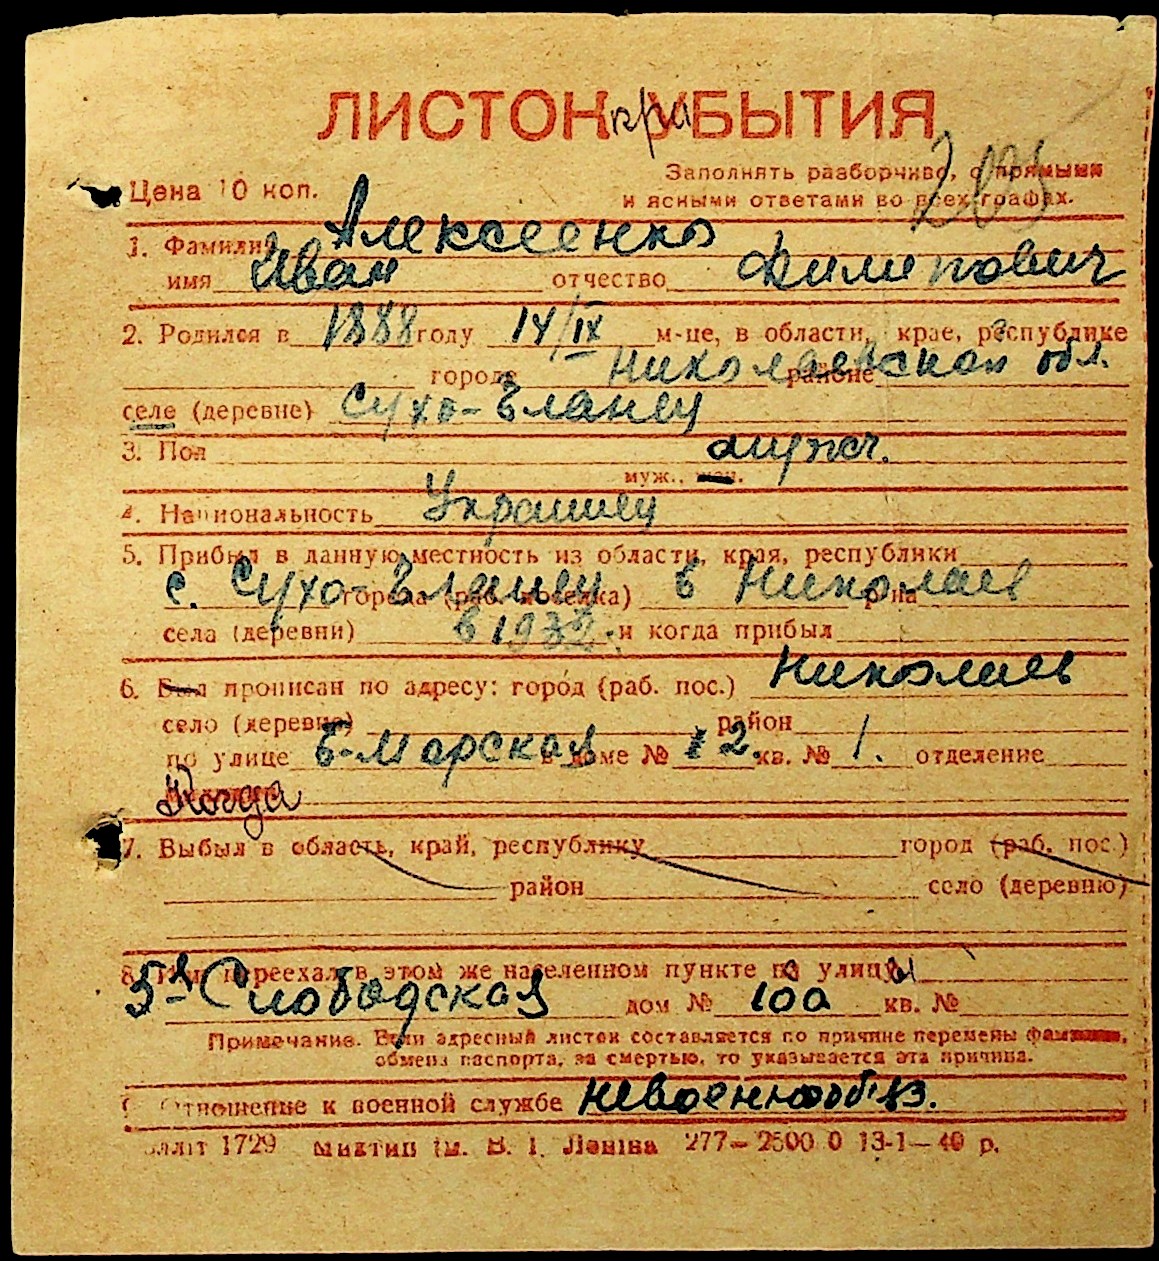 ЛИСТОК при УБЫТИЯ
205
Цена 10 коп.
Заполнять разборчиво, с прямыми
и ясными ответами во всех графах.
1. Фамилия Алексеенко
имя Иван отчество Филипович
2. Родился в 1888 году 14/IX м-це, в области, крае, республике
городе Николаевской обл. районе
селе (деревне) Сухо-Еланец
3. Пол мужч.
муж., жен.
4. Национальность Украинец
5. Прибыл в данную местность из области, края, республики
с. Сухо-Еланец города (раб. поселка) в Николаев р-на
села (деревни) в 1932. и когда прибыл
6. Был прописан по адресу: город (раб. пос.) Николаев
село (деревне) район
по улице Б-Морская в доме № 2. кв. № 1. отделение
Когда
7. Выбыл в область, край, республику город (раб. пос.)
район село (деревню)
8. Или переехал в этом же населенном пункте по улицы
5я Слободская дом № 10а кв. №
Примечание. Если адресный листок составляется по причине перемены фамилии,
обмена паспорта, за смертью, то указывается эта причина.
9. Отношение к военной службе Невоеннообяз.
1729 им. В. І. Леніна 277—2500 0 13-1—40 р.